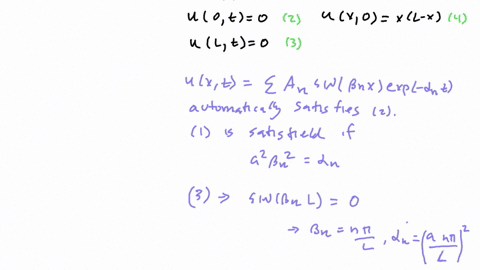 u(0,t)=0 (2) u(x,0)=x(L-x) (4)
u(L,t)=0 (3)
u(x,t)= Σ An sin(βnx) exp(-αnt)
automatically satisfies (2).
(1) is satisfield if
a²βn² = αn
(3) → sin(βn L) = 0
→ βn = nπ/L , αn = (a nπ/L)²